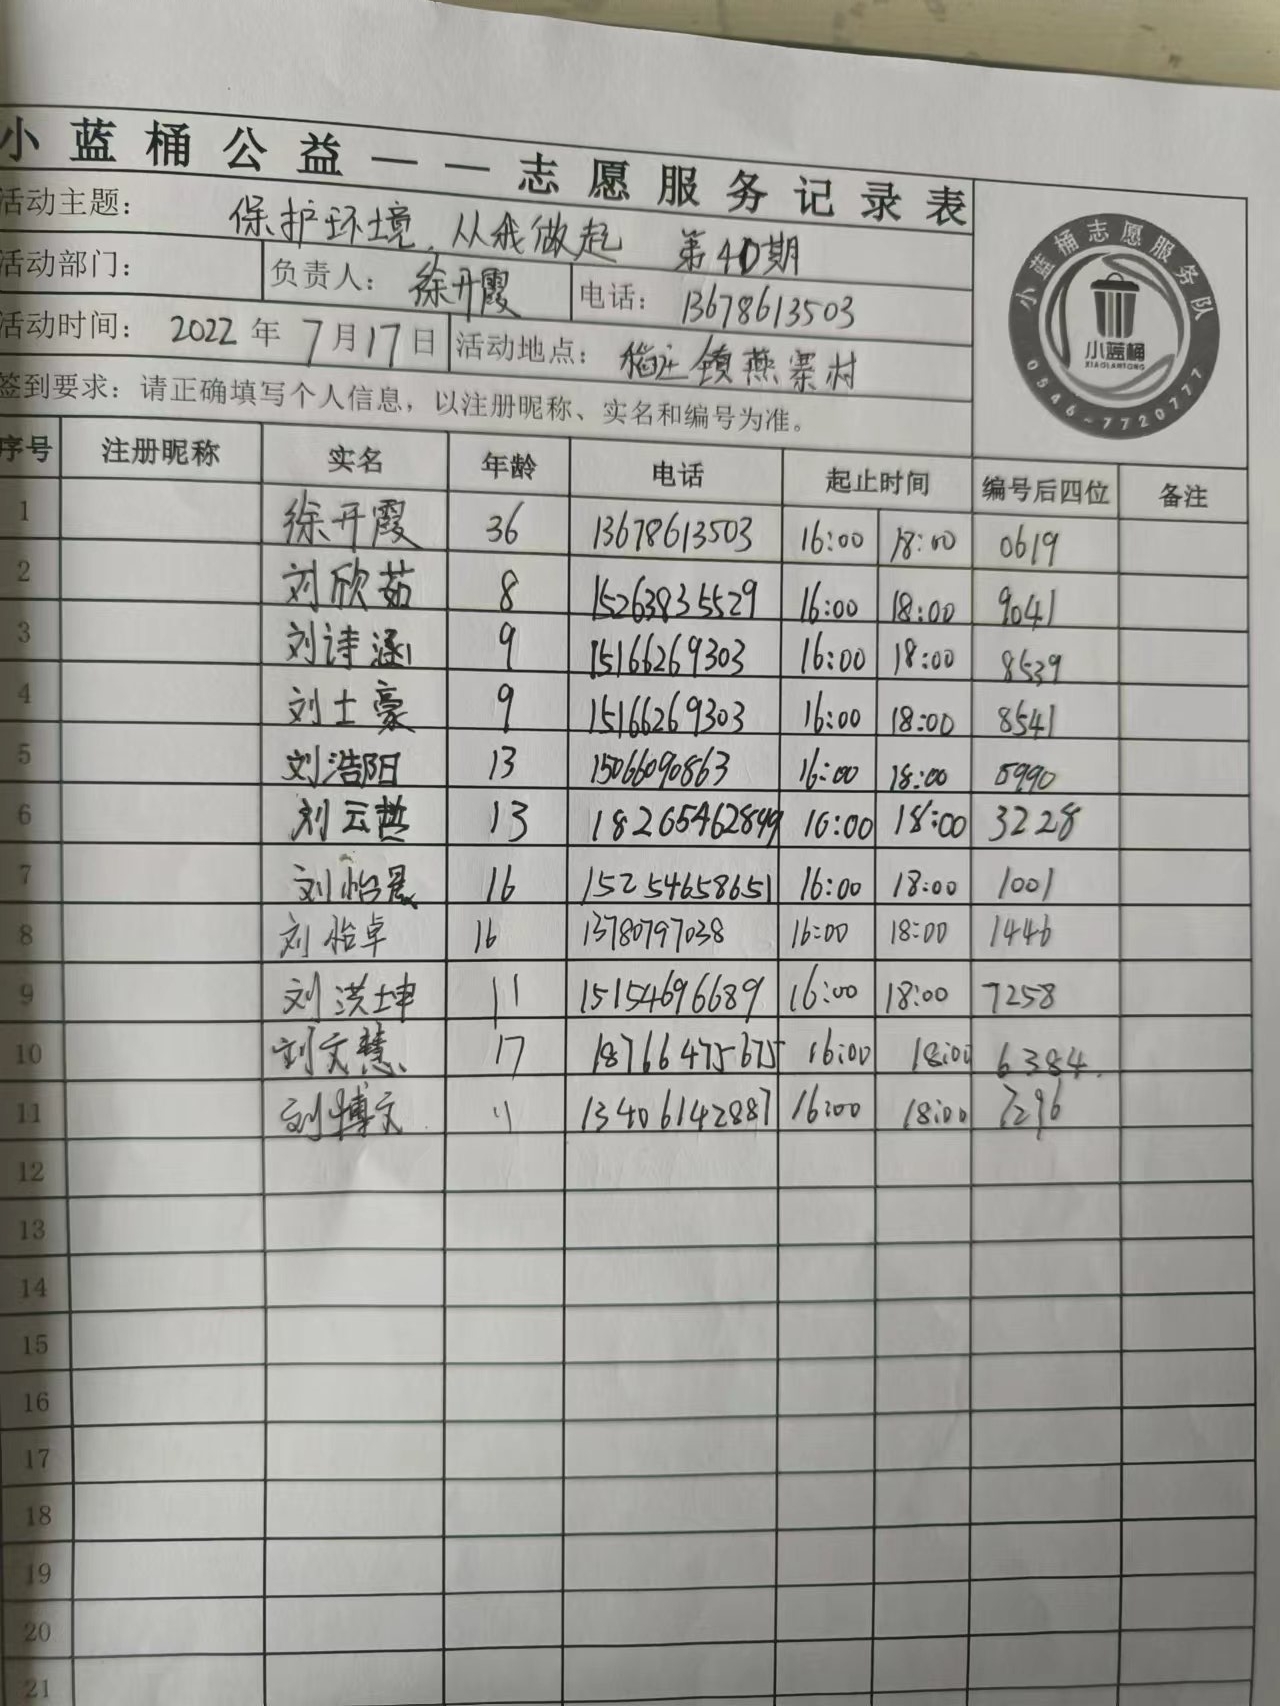 小蓝桶公益——志愿服务记录表
活动主题： 保护环境，从我做起 第40期
活动部门： 负责人： 徐开霞 电话： 13678613503
活动时间： 2022年7月17日 活动地点： 稻庄镇燕寨村
签到要求：请正确填写个人信息，以注册昵称、实名和编号为准。
小蓝桶志愿服务队
小蓝桶
XIAOLANTONG
0546-7720777
序号 注册昵称 实名 年龄 电话 起止时间 编号后四位 备注
1 徐开霞 36 13678613503 16:00 18:00 0619
2 刘欣茹 8 15263835529 16:00 18:00 9041
3 刘诗涵 9 15166269303 16:00 18:00 8539
4 刘士豪 9 15166269303 16:00 18:00 8541
5 刘浩阳 13 15066090863 16:00 18:00 0990
6 刘云哲 13 18265462899 16:00 18:00 3228
7 刘怡晨 16 15254658651 16:00 18:00 1001
8 刘怡卓 16 13780797038 16:00 18:00 1446
9 刘洪坤 11 15154696689 16:00 18:00 7258
10 刘文慧 17 18766475675 16:00 18:00 6384.
11 刘博文 11 13406142887 16:00 18:00 7296
12
13
14
15
16
17
18
19
20
21